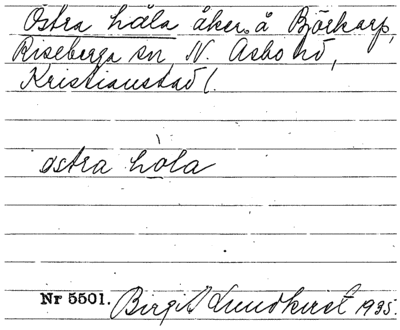 Östra håla åker å Björkarp,
Riseberga sn, N. Asbo hd,
Kristianstad l.
östra hòla
Nr 5501. Birgit Lundkvist 1935.